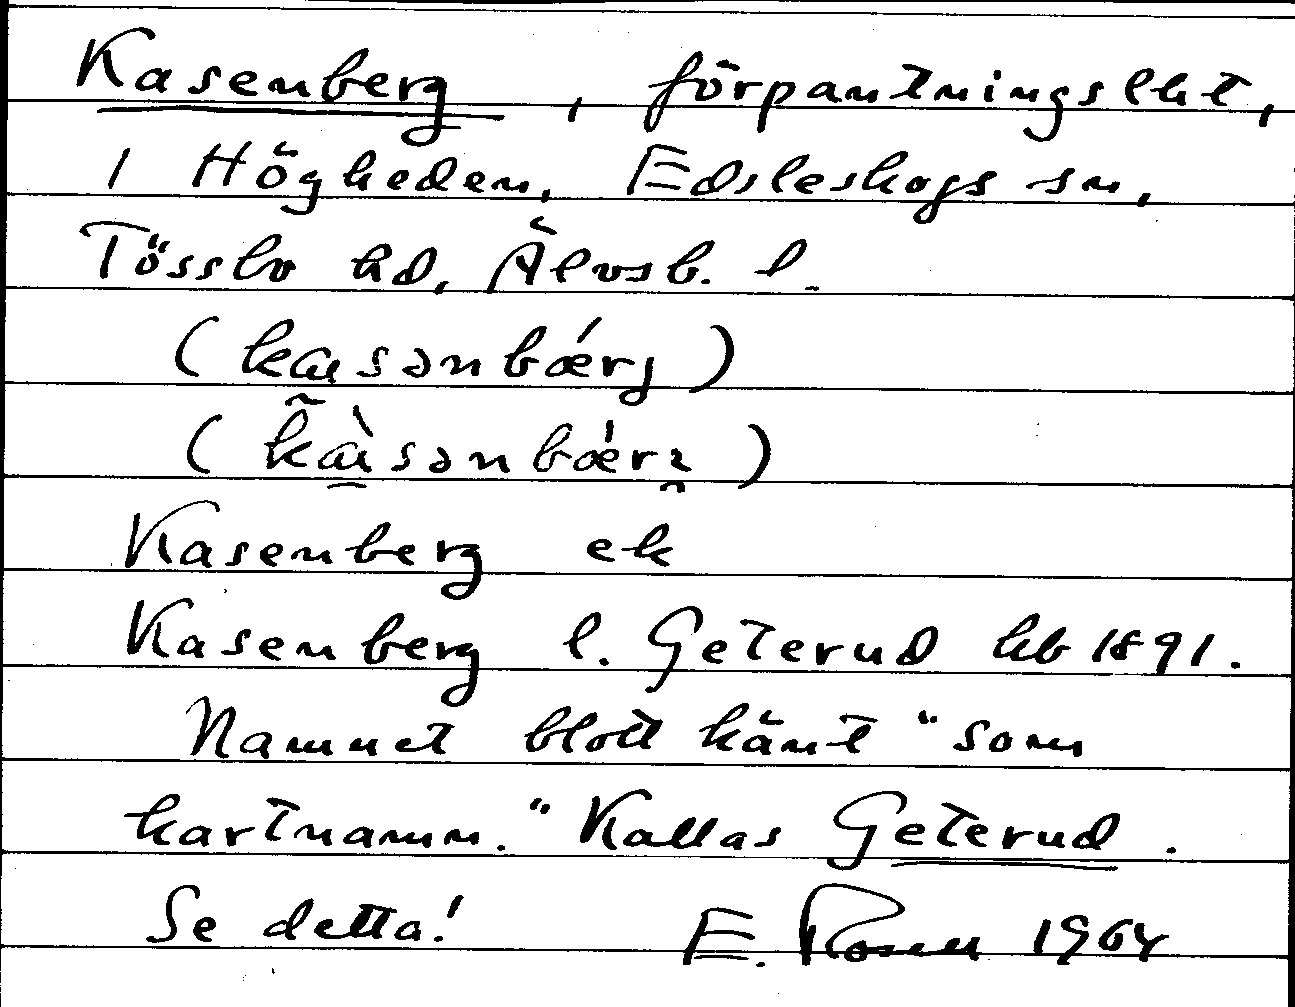 Kasenberg, förpantningslht,
i Högheden, Edsleskogs sn,
Tössbo hd, Älvsb. l.
(kasənbǽrj)
(kàsənbǽrj)
Kasenberg ek
Kasenberg l. Geterud hb 1891.
Namnet blott känt "som
kartnamn." Kallas Geterud.
Se detta! E. Rosell 1964